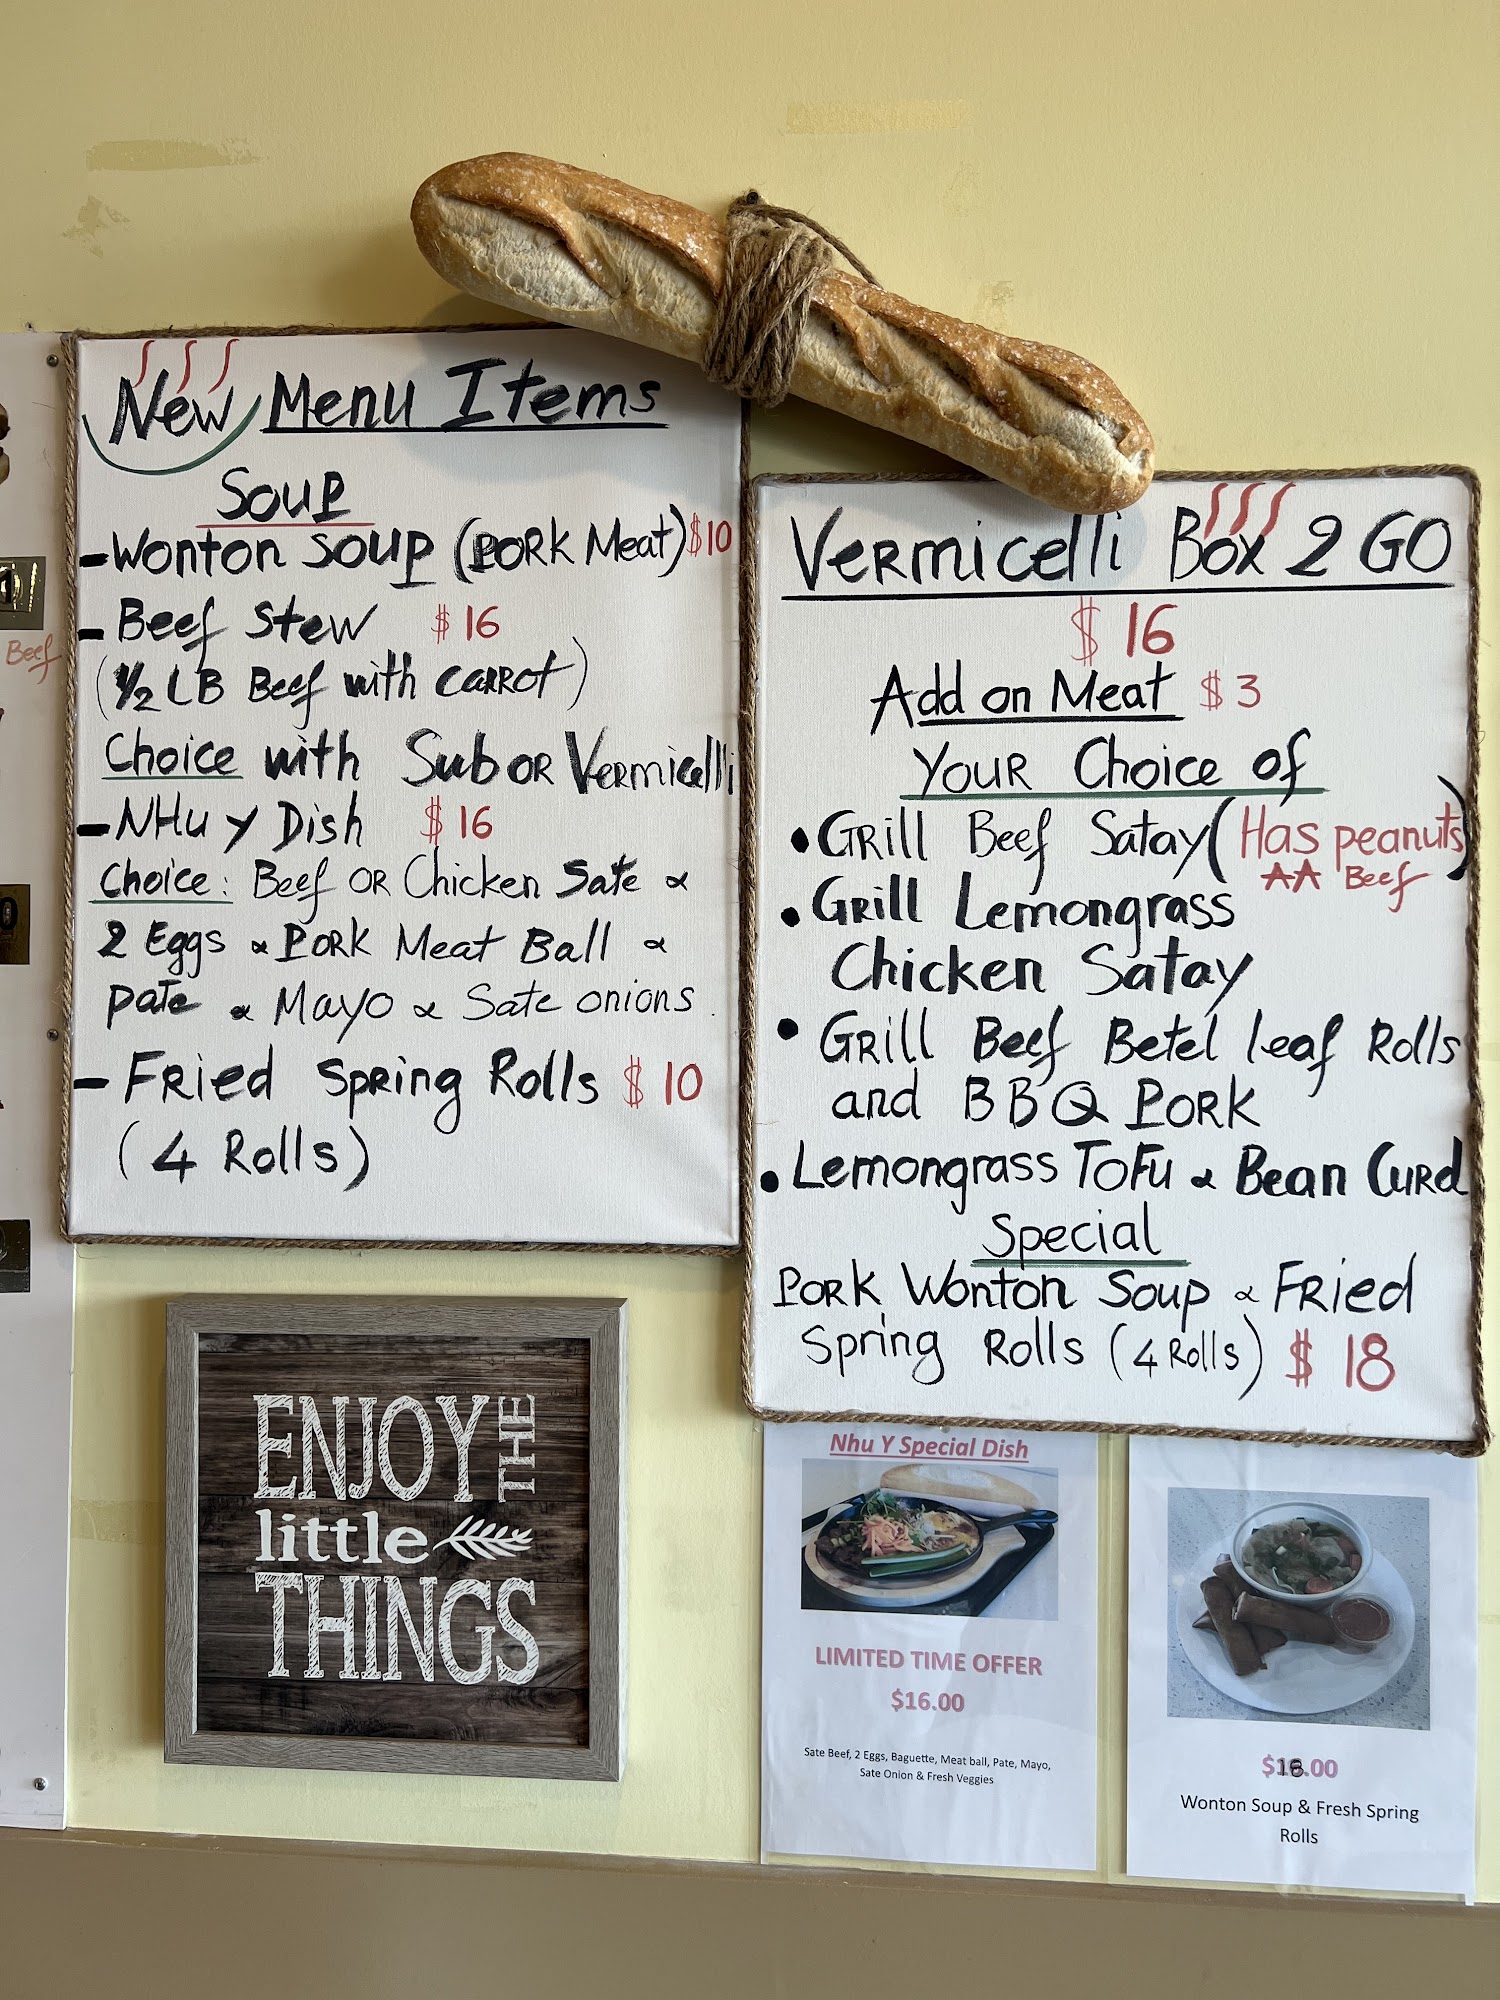 New Menu Items
Soup
- Wonton Soup (Pork Meat) $10
- Beef Stew $16
(1/2 LB Beef with carrot)
Choice with Sub or Vermicelli
- NHu y Dish $16
Choice: Beef or Chicken Sate &
2 Eggs & Pork Meat Ball &
Pate & Mayo & Sate onions.
- Fried Spring Rolls $10
(4 Rolls)
Beef
Vermicelli Box 2 GO
$16
Add on Meat $3
Your Choice of
• Grill Beef Satay (Has peanuts)
AA Beef
• Grill Lemongrass
Chicken Satay
• Grill Beef Betel leaf Rolls
and BBQ Pork
• Lemongrass Tofu & Bean Curd
Special
Pork Wonton Soup & Fried
Spring Rolls (4 Rolls) $18
ENJOY THE
little
THINGS
Nhu Y Special Dish
LIMITED TIME OFFER
$16.00
Sate Beef, 2 Eggs, Baguette, Meat ball, Pate, Mayo,
Sate Onion & Fresh Veggies
$18.00
Wonton Soup & Fresh Spring
Rolls